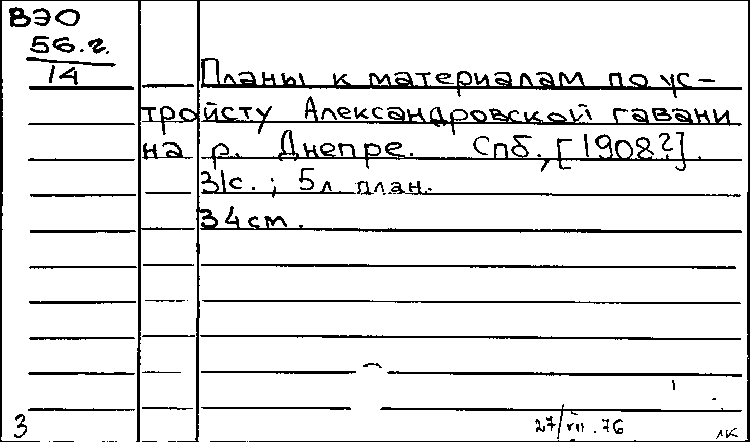 ВЭО
56.г.
14
Планы к материалам по ус-
тройсту Александровской гавани
на р. Днепре. Спб., [1908?].
31с. ; 5л. план.
34 cm.
3
27/VII.76
ЛК